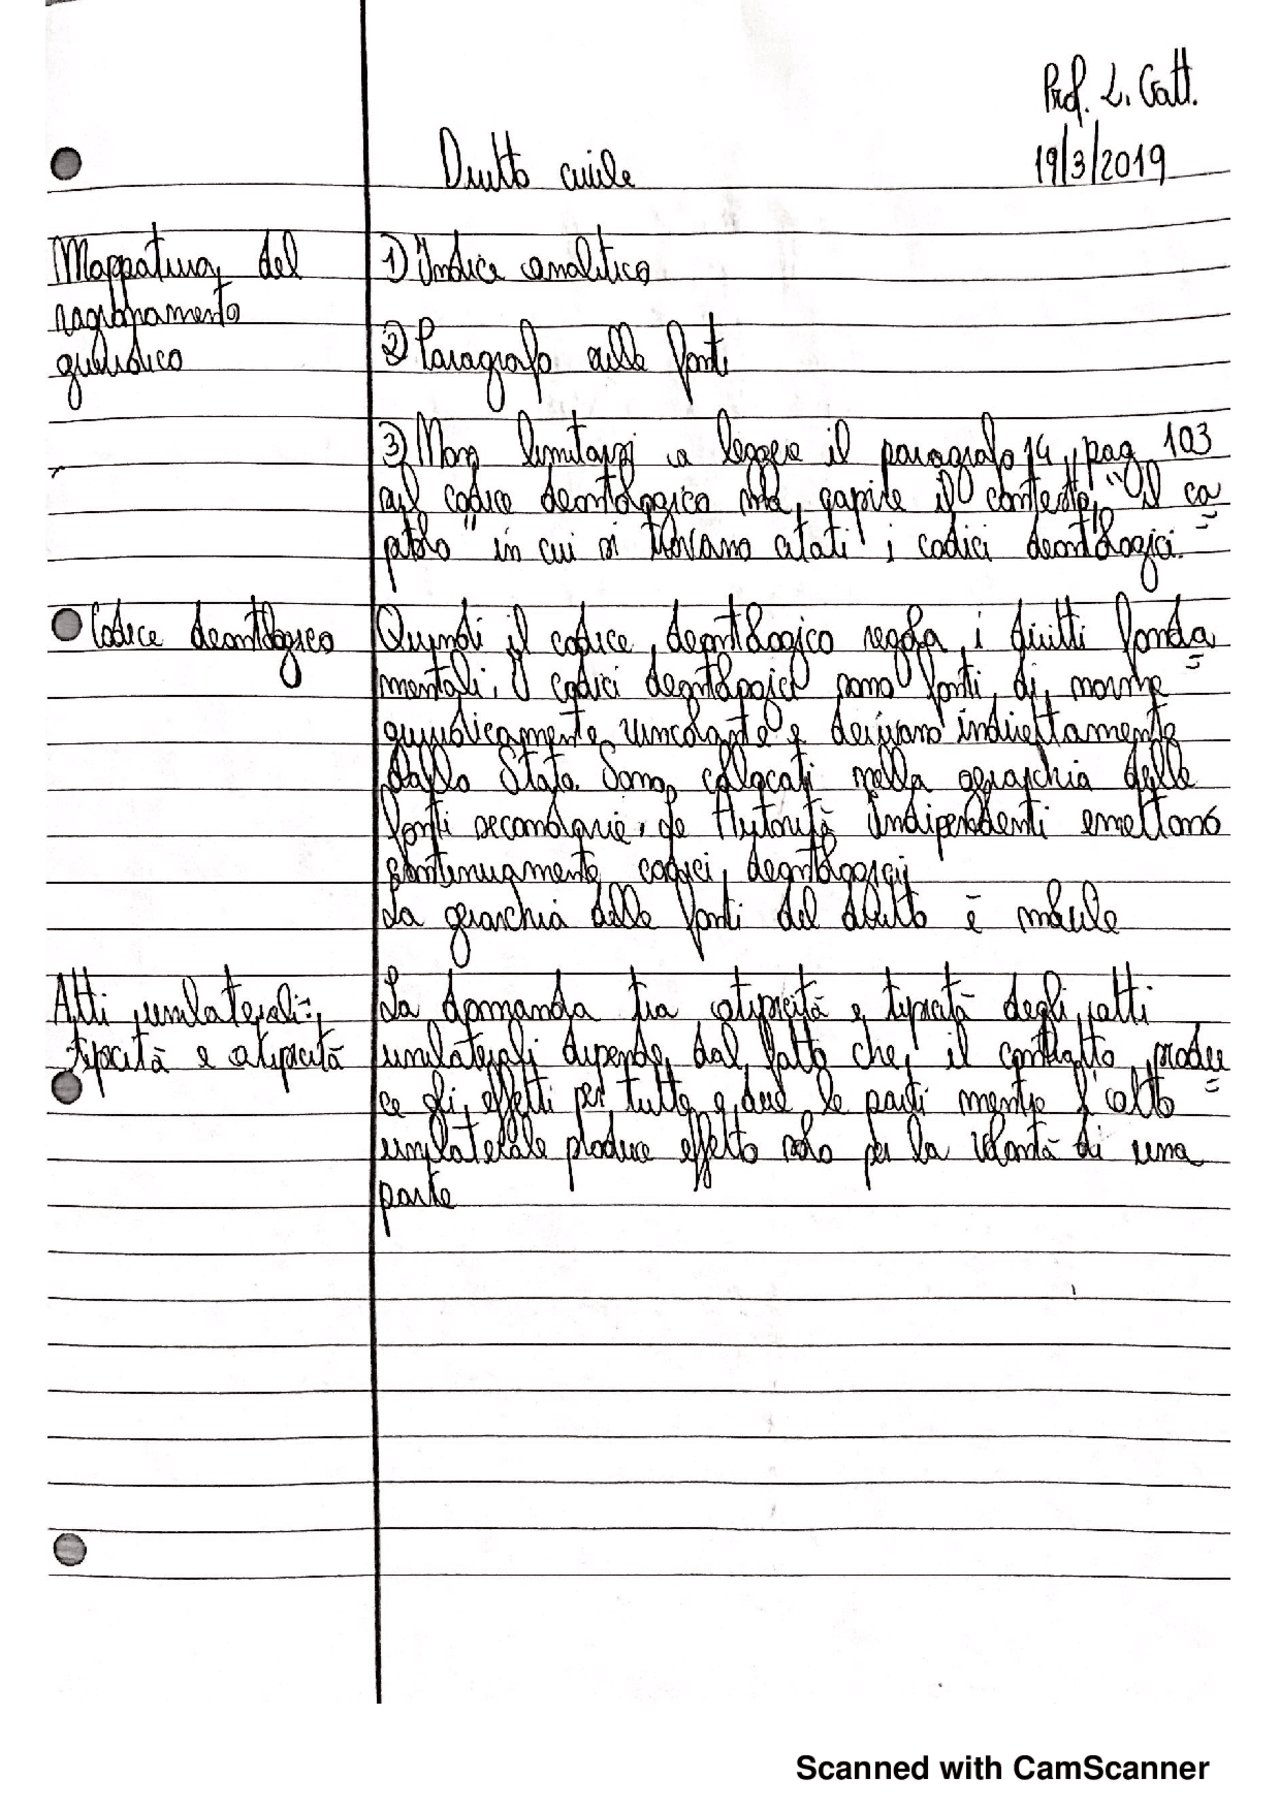 Prof. L. Gatt.
19/3/2019
Diritto civile
Mappatura del
ragionamento
giuridico
1) Indice analitico
2) Paragrafo delle fonti
3) Non limitarsi a leggere il paragrafo 14, pag 103
del codice deontologico ma, capire il contesto, "il ca
pitolo" in cui si trovano citati i codici deontologici.
Codice deontologico
Quindi il codice deontologico regola i diritti fonda
mentali. I codici deontologici sono fonti di norme
giuridicamente vincolante e derivano indirettamente
dallo Stato. Sono collocati nella gerarchia delle
fonti secondarie. Le Autorità Indipendenti emettono
continuamente codici deontologici
La gerarchia delle fonti del diritto è mobile
Atti unilaterali:
tipicità e atipicità
La domanda tra atipicità e tipicità degli atti
unilaterali dipende dal fatto che, il contratto produ
ce gli effetti per tutte e due le parti mentre l'atto
unilaterale produce effetto solo per la volontà di una
parte
Scanned with CamScanner